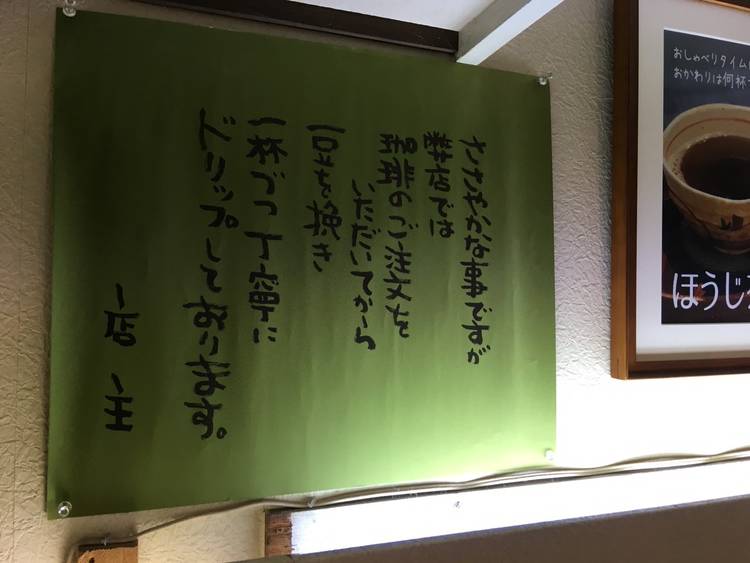 ささやかな事ですが
弊店では
珈琲のご注文を
いただいてから
豆を挽き
一杯づつ丁寧に
ドリップしております。
店主
おしゃべりタイム
おかわりは何杯
ほうじ茶